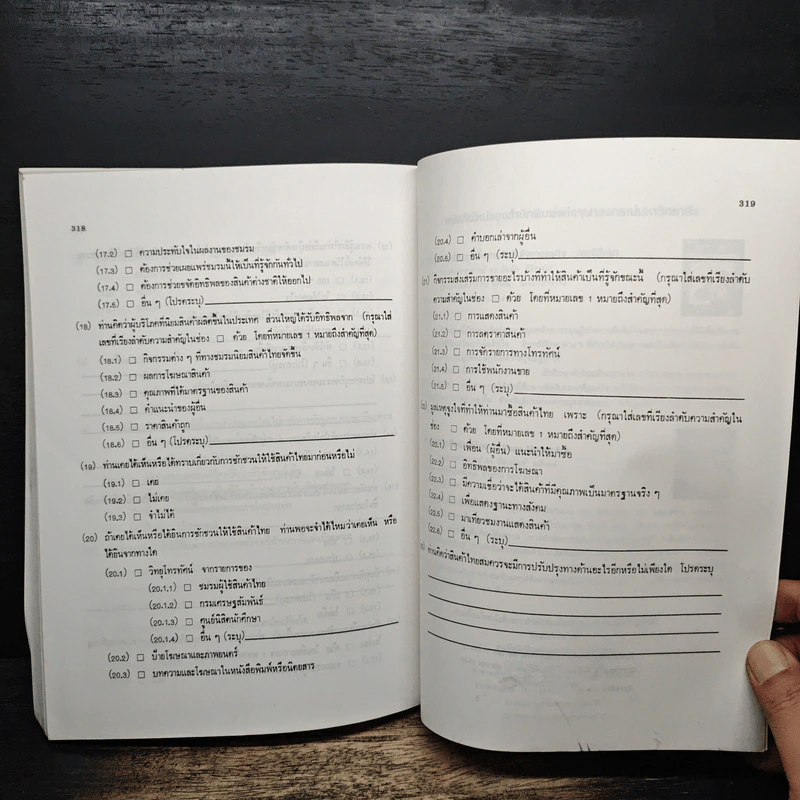 318
(17.2) □ ความประทับใจในผลงานของชมรม
(17.3) □ ต้องการช่วยเผยแพร่ชมรมนี้ให้เป็นที่รู้จักกันทั่วไป
(17.4) □ ต้องการช่วยขจัดอิทธิพลของสินค้าต่างชาติให้ออกไป
(17.5) □ อื่น ๆ (โปรดระบุ)
(18) ท่านคิดว่าผู้บริโภคที่นิยมสินค้าผลิตขึ้นในประเทศ ส่วนใหญ่ได้รับอิทธิพลจาก (กรุณาใส่
เลขที่เรียงลำดับความสำคัญในช่อง □ ด้วย โดยที่หมายเลข 1 หมายถึงสำคัญที่สุด)
(18.1) □ กิจกรรมต่าง ๆ ที่ทางชมรมนิยมสินค้าไทยจัดขึ้น
(18.2) □ ผลการโฆษณาสินค้า
(18.3) □ คุณภาพที่ได้มาตรฐานของสินค้า
(18.4) □ คำแนะนำของผู้อื่น
(18.5) □ ราคาสินค้าถูก
(18.6) □ อื่น ๆ (โปรดระบุ)
(19) ท่านเคยได้เห็นหรือได้ทราบเกี่ยวกับการชักชวนให้ใช้สินค้าไทยมาก่อนหรือไม่
(19.1) □ เคย
(19.2) □ ไม่เคย
(19.3) □ จำไม่ได้
(20) ถ้าเคยได้เห็นหรือได้ยินการชักชวนให้ใช้สินค้าไทย ท่านพอจะจำได้ไหมว่าเคยเห็น หรือ
ได้ยินจากทางใด
(20.1) □ วิทยุโทรทัศน์ จากรายการของ
(20.1.1) □ ชมรมผู้ใช้สินค้าไทย
(20.1.2) □ กรมเศรษฐสัมพันธ์
(20.1.3) □ ศูนย์นิสิตนักศึกษา
(20.1.4) □ อื่น ๆ (ระบุ)
(20.2) □ ป้ายโฆษณาและภาพยนตร์
(20.3) □ บทความและโฆษณาในหนังสือพิมพ์หรือนิตยสาร
319
(20.4) □ คำบอกเล่าจากผู้อื่น
(20.5) □ อื่น ๆ (ระบุ)
(21) กิจกรรมส่งเสริมการขายอะไรบ้างที่ทำให้สินค้าเป็นที่รู้จักขณะนี้ (กรุณาใส่เลขที่เรียงลำดับ
ความสำคัญในช่อง □ ด้วย โดยที่หมายเลข 1 หมายถึงสำคัญที่สุด)
(21.1) □ การแสดงสินค้า
(21.2) □ การลดราคาสินค้า
(21.3) □ การจัดรายการทางโทรทัศน์
(21.4) □ การใช้พนักงานขาย
(21.5) □ อื่น ๆ (ระบุ)
มูลเหตุจูงใจที่ทำให้ท่านมาซื้อสินค้าไทย เพราะ (กรุณาใส่เลขที่เรียงลำดับความสำคัญใน
ช่อง □ ด้วย โดยที่หมายเลข 1 หมายถึงสำคัญที่สุด)
(22.1) □ เพื่อน (ผู้อื่น) แนะนำให้มาซื้อ
(22.2) □ อิทธิพลของการโฆษณา
(22.3) □ มีความเชื่อว่าจะได้สินค้าที่มีคุณภาพเป็นมาตรฐานจริง ๆ
(22.4) □ เพื่อแสดงฐานะทางสังคม
(22.5) □ มาเที่ยวชมงานแสดงสินค้า
(22.6) □ อื่น ๆ (ระบุ)
ท่านคิดว่าสินค้าไทยสมควรจะมีการปรับปรุงทางด้านอะไรอีกหรือไม่เพียงใด โปรดระบุ